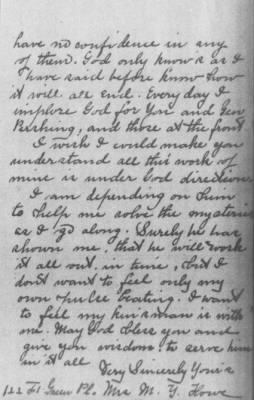 have no confidence in any
of them. God only knows as I
have said before know how
it will all end. Every day I
implore God for You and Gen
Pershing, and those at the front
I wish I could make you
understand all this work of
mine is under God directions
I am depending on him
to help me solve the mysteries
as I go along. Surely he has
shown me, that he will work
it all out in time, but I
don't want to feel only my
own pulse beating. I want
to feel my kinsman is with
me. May God bless you and
give you wisdom to serve him
in it all
Very Sincerely Yours
122 Green Pl. Mrs M. Y. Howe